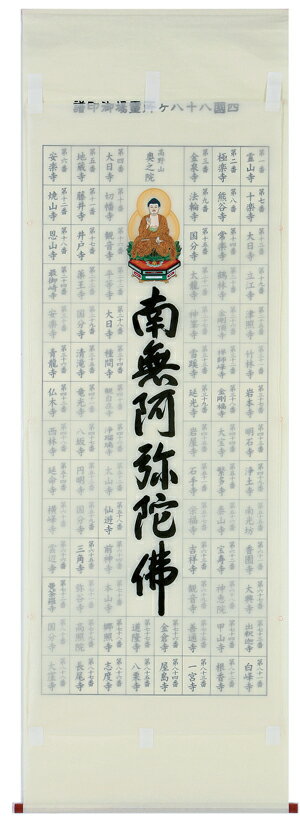 四國八十八ヶ所靈場御印譜
第一番
霊山寺
第二番
極楽寺
第三番
金泉寺
高野山
奥之院
第四番
大日寺
第五番
地蔵寺
第六番
安楽寺
第七番
十楽寺
第八番
熊谷寺
第九番
法輪寺
第十番
切幡寺
第十一番
藤井寺
第十二番
焼山寺
第十三番
大日寺
第十四番
常楽寺
第十五番
国分寺
第十六番
観音寺
第十七番
井戸寺
第十八番
恩山寺
第十九番
立江寺
第二十番
鶴林寺
第二十一番
太龍寺
第二十二番
平等寺
第二十三番
薬王寺
第二十四番
最御崎寺
第二十五番
津照寺
第二十六番
金剛頂寺
第二十七番
神峯寺
第二十八番
大日寺
第二十九番
国分寺
第三十番
安楽寺
第三十一番
竹林寺
第三十二番
禅師峰寺
第三十三番
雪蹊寺
第三十四番
種間寺
第三十五番
清滝寺
第三十六番
青龍寺
第三十七番
岩本寺
第三十八番
金剛福寺
第三十九番
延光寺
第四十番
観自在寺
第四十一番
竜光寺
第四十二番
仏木寺
第四十三番
明石寺
第四十四番
大宝寺
第四十五番
岩屋寺
第四十六番
浄瑠璃寺
第四十七番
八坂寺
第四十八番
西林寺
第四十九番
浄土寺
第五十番
繁多寺
第五十一番
石手寺
第五十二番
太山寺
第五十三番
円明寺
第五十四番
延命寺
第五十五番
南光坊
第五十六番
泰山寺
第五十七番
栄福寺
第五十八番
仙遊寺
第五十九番
国分寺
第六十番
横峰寺
第六十一番
香園寺
第六十二番
宝寿寺
第六十三番
吉祥寺
第六十四番
前神寺
第六十五番
三角寺
第六十六番
雲辺寺
第六十七番
大興寺
第六十八番
神恵院
第六十九番
観音寺
第七十番
本山寺
第七十一番
弥谷寺
第七十二番
曼荼羅寺
第七十三番
出釈迦寺
第七十四番
甲山寺
第七十五番
善通寺
第七十六番
金倉寺
第七十七番
道隆寺
第七十八番
郷照寺
第七十九番
高照院
第八十番
国分寺
第八十一番
白峰寺
第八十二番
根香寺
第八十三番
一宮寺
第八十四番
屋島寺
第八十五番
八栗寺
第八十六番
志度寺
第八十七番
長尾寺
第八十八番
大窪寺
南無阿弥陀佛